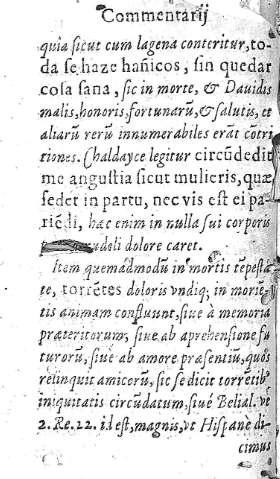 Commentarij
quia sicut cum lagena conteritur, to-
da se haze hañicos, sin quedar
cosa sana, sic in morte, & Dauidis
malis, honoris, fortunarū, & salutis, et
aliarū rerū innumerabiles erāt cōtri
tiones. Chaldayce legitur circūdedit
me angustia sicut mulieris, quæ
sedet in partu, nec vis est ei pa-
riēdi, hæc enim in nulla sui corporis
crudeli dolore caret.
Item quemadmodū in mortis tēpesta
te, torrētes doloris vndiq; in moriē-
tis animam confluunt, siue à memoria
præteritorum, siue ab aprehensione fu
turorū, siue ab amore præsentiū, quos
relinquit amicorū, sic se dicit torrētib'
iniquitatis circūdatum, siue Belial. vt
2. Re. 22. id est, magnis, vt Hispanè di-
cimus